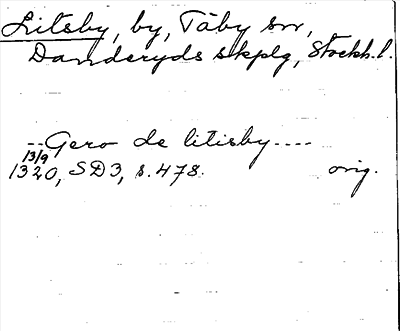 Litsby, by, Täby sn,
Danderyds skplg, Stockh.l.
-- Gero de litisby ----
13/9
1320, SD3, s. 478. orig.